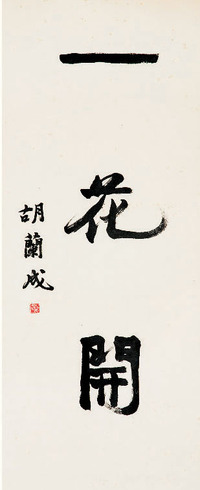 一花開
胡蘭成